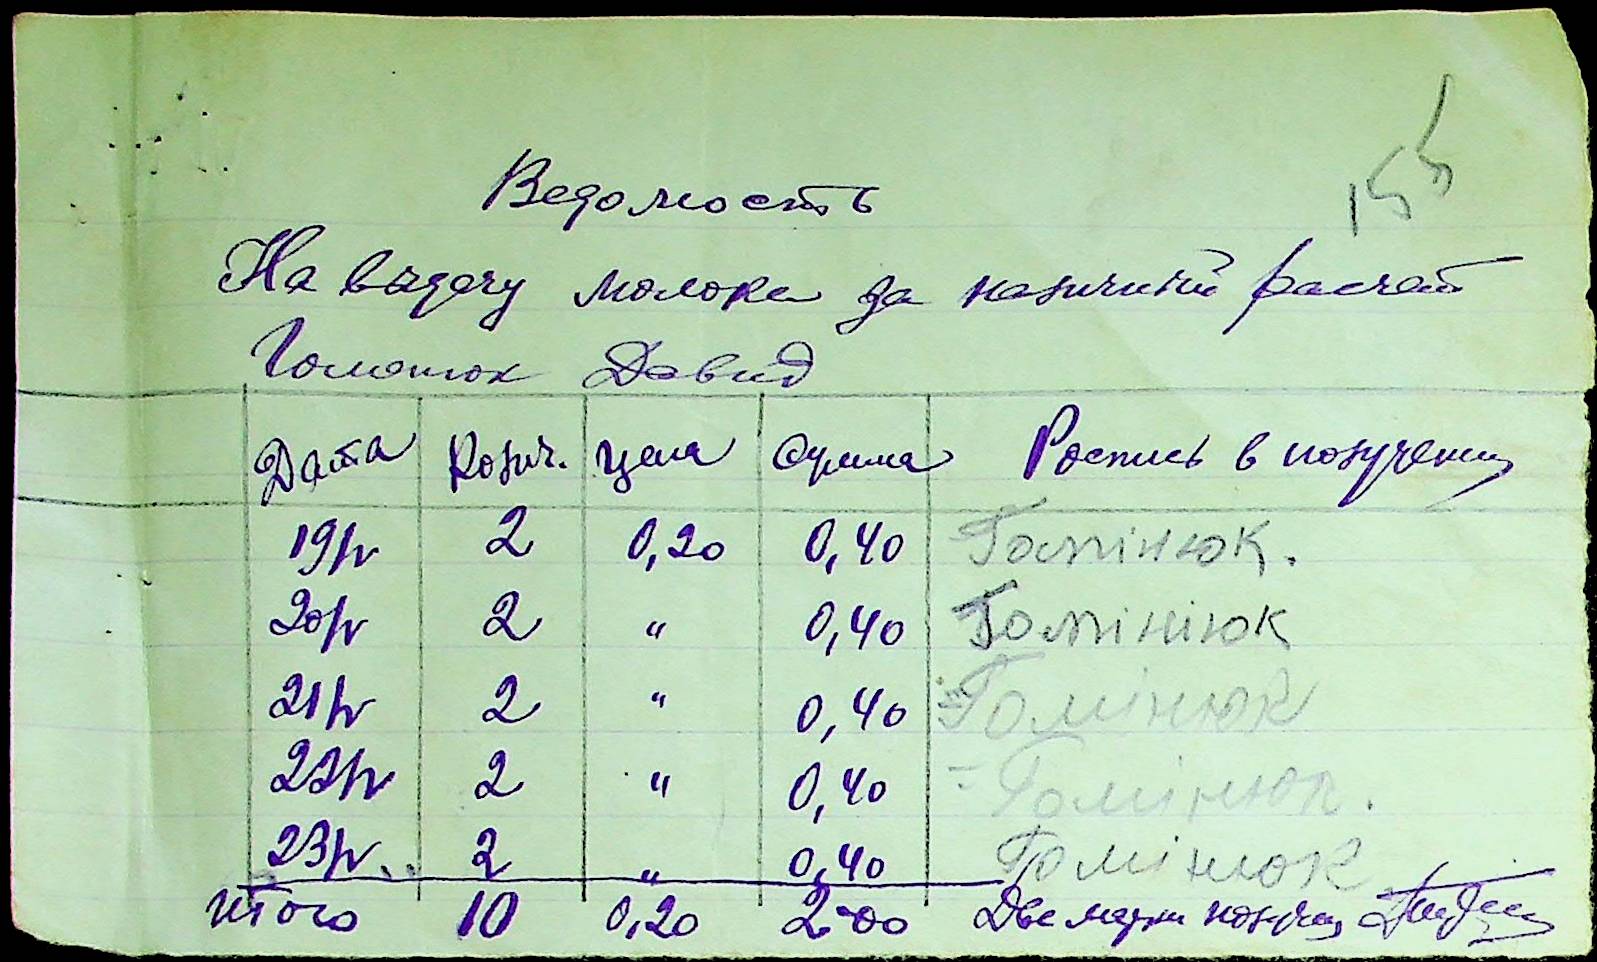 155
Ведомость
На выдачу молока за наличный расчет
Гоменюк Давид
Дата Колич. Цена Сумма Роспись в получении
19/IV 2 0,20 0,40 Гомінюк.
20/IV 2 " 0,40 Гомінюк
21/IV 2 " 0,40 Гомінюк
22/IV 2 " 0,40 Гомінюк.
23/IV 2 " 0,40 Гомінюк
Итого 10 0,20 2-00 Две марки получил